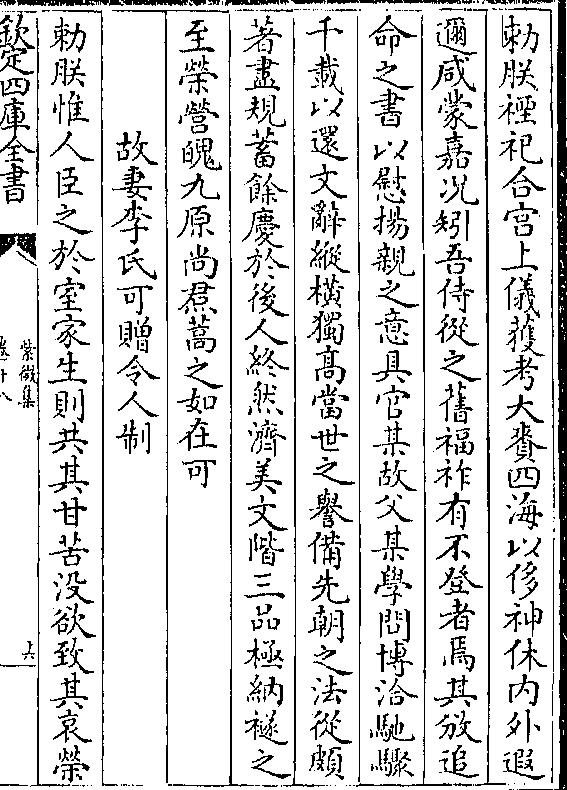 勅朕禋祀合宫上儀獲考大賚四海以侈神休内外遐
邇咸蒙嘉况矧吾侍從之舊福祚有不登者焉其攽追
命之書以慰揚親之意具官某故父某學問博洽馳驟
千載以還文辭縱横獨髙當世之譽備先朝之法從頗
著盡規蓄餘慶於後人終然濟美文階三品極納襚之
至榮營魄九原尚焄蒿之如在可
故妻李氏可贈令人制
勅朕惟人臣之於室家生則共其甘苦没欲致其哀榮
欽定四庫全書
紫微集
卷十八
十六